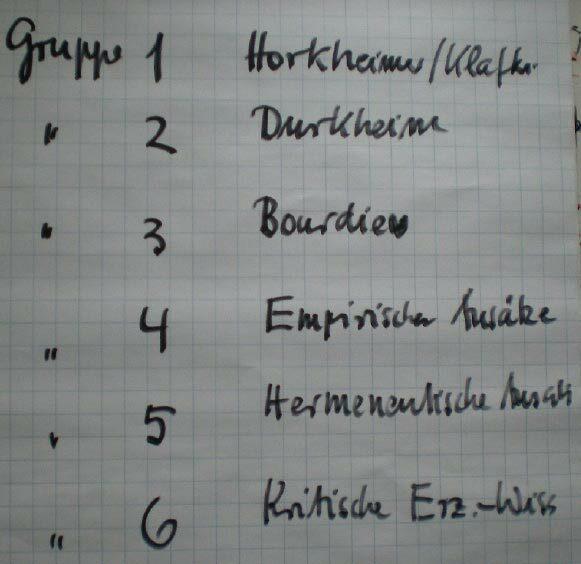 Gruppe 1 Horkheimer/Klafki
" 2 Durkheim
" 3 Bourdieu
" 4 Empirischer Ansätze
" 5 Hermeneutische Ansatz
" 6 Kritische Erz.-Wiss